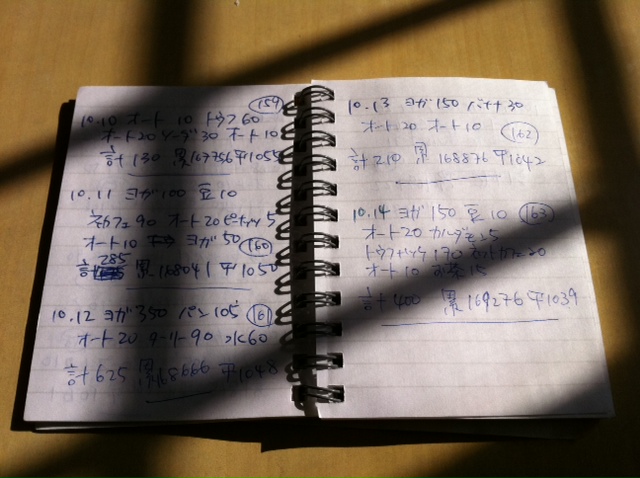 10.10 オート 10 トウフ 60 (159)
オート20 30 オート10
計 130 累167756 平1055
10.11 ヨガ100 豆10
ネカフェ90 オート20 ピーナッツ5
オート10 ヨガ50 (160)
計 285 累168041 平1050
10.12 ヨガ350 パン105 (161)
オート20 90 水60
計625 累168666 平1048
10.13 ヨガ150 バナナ30
オート20 オート10 (162)
計210 累168876 平1042
10.14 ヨガ150 豆10 (163)
オート20
170 20
オート10 お茶15
計400 累169276 平1039